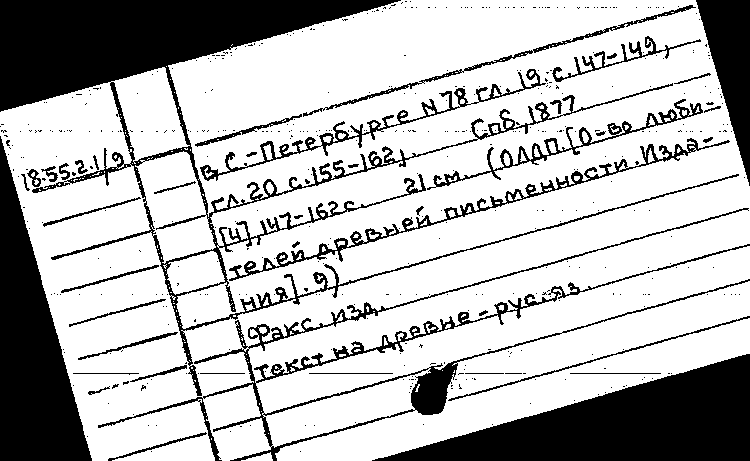 18.55.2.1/9
в С.-Петербурге N 78 гл. 19. с. 147-149,
гл. 20 с. 155-162]. Спб, 1877.
[4], 147-162 с. 21 см. (ОЛДП. [О-во люби-
телей древней письменности. Изда-
ния]. 9)
Факс. изд.
Текст на древне-рус. яз.